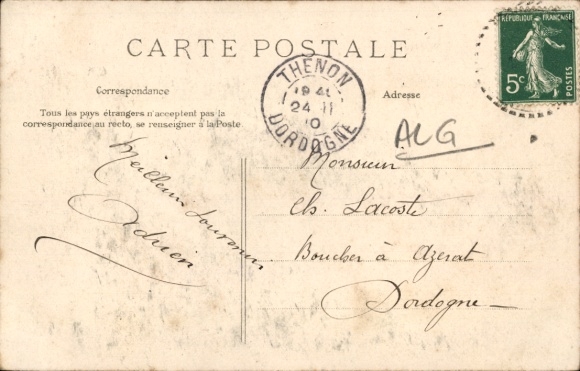 CARTE POSTALE
Correspondance
Tous les pays étrangers n'acceptent pas la
correspondance au recto, se renseigner à la Poste
Meilleur souvenir
Adrien
THENON
19 4
24 - 11
10
DORDOGNE
Adresse
RÉPUBLIQUE FRANÇAISE
5c
ALG
Monsieur
Ch. Lacoste
Boucher à Azerat
Dordogne